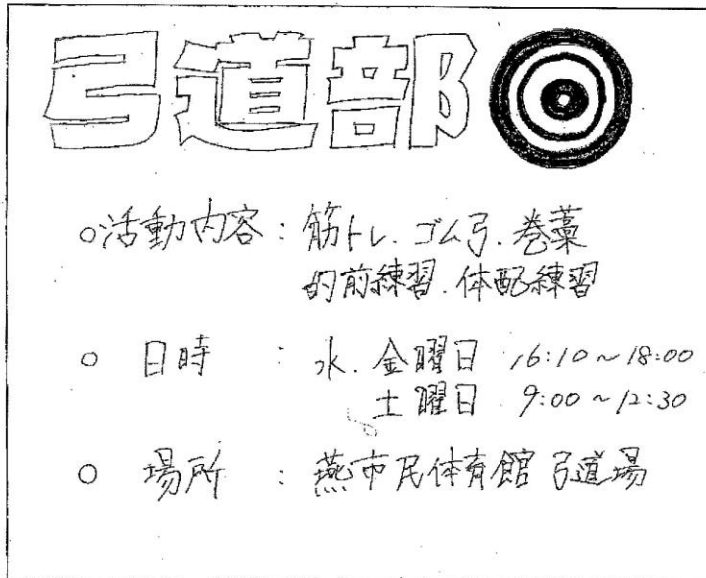 弓道部
○活動内容：筋トレ．ゴム弓．巻藁
的前練習．体配練習
○ 日時 ：水．金曜日 16:10～18:00
土曜日 9:00～12:30
○ 場所 ：燕市民体育館 弓道場